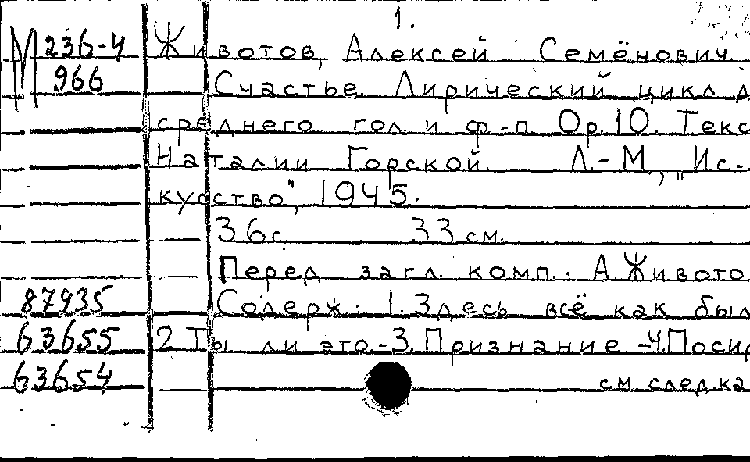 1.
М 236-4 Животов, Алексей Семёнович
966 Счастье Лирический цикл д
среднего гол и ф-п. Ор.10. Текс
Наталии Горской. Л.-М., "Ис-
кусство", 1945.
36с. 33 см.
Перед загл. комп.: А.Живото
87935 Содерж.: 1.Здесь всё как был
63655 2.Ты ли это.-3.Признание -4.Посид
63654 см след.ка